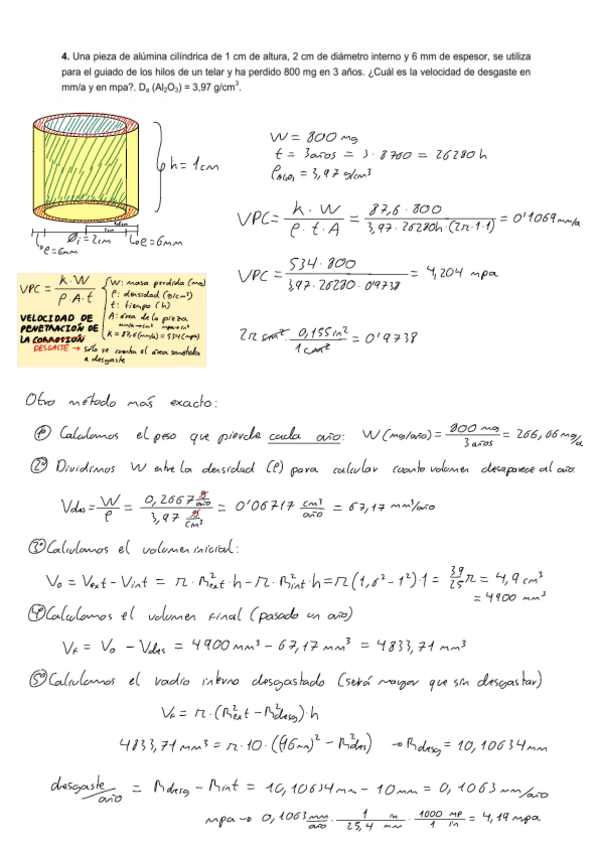 4. Una pieza de alúmina cilíndrica de 1 cm de altura, 2 cm de diámetro interno y 6 mm de espesor, se utiliza
para el guiado de los hilos de un telar y ha perdido 800 mg en 3 años. ¿Cuál es la velocidad de desgaste en
mm/a y en mpa?. Dₐ (Al₂O₃) = 3,97 g/cm³.
W = 800 mg
t = 3 años = 3 · 8760 = 26280 h
ρAl₂O₃ = 3,97 g/cm³
h = 1 cm
VPC = k · W / ρ · t · A = 87,6 · 800 / 3,97 · 26280h · (2π · 1 · 1) = 0'1069 mm/a
Øi = 2cm
e = 6mm
e = 6mm
VPC = 534 · 800 / 3,97 · 26280 · 0'9738 = 4,204 mpa
VPC = k · W / ρ · A · t
W: masa perdida (mg)
ρ: densidad (g/cm³)
t: tiempo (h)
A: área de la pieza
mm/a → cm² mpa → in²
k = 87,6 (mm/a) = 534 (mpa)
VELOCIDAD DE
PENETRACIÓN DE
LA CORROSIÓN
DESGASTE → solo se cuenta el área sometida
a desgaste
2π cm² · 0,155 in² / 1 cm² = 0'9738
Otro método más exacto:
1º Calculamos el peso que pierde cada año: W (mg/año) = 800 mg / 3 años = 266,66 mg/a
2º Dividimos W entre la densidad (ρ) para calcular cuanto volumen desaparece al año:
Vdes = W / ρ = 0,2667 g/año / 3,97 g/cm³ = 0'06717 cm³/año = 67,17 mm³/año
3º Calculamos el volumen inicial:
V₀ = Vext - Vint = π · R²ext · h - π · R²int · h = π (1,6² - 1²) · 1 = 39/25 π = 4,9 cm³
= 4900 mm³
4º Calculamos el volumen final (pasado un año)
Vf = V₀ - Vdes = 4900 mm³ - 67,17 mm³ = 4833,71 mm³
5º Calculamos el radio interno desgastado (será mayor que sin desgastar)
Vf = π · (R²ext - R²desg) · h
4833,71 mm³ = π · 10 · ((16mm)² - R²des) → Rdesg = 10,10634 mm
desgaste/año = Rdesg - Rint = 10,10634 mm - 10 mm = 0,1063 mm/año
mpa → 0,1063 mm/año · 1 in / 25,4 mm · 1000 MP / 1 in = 4,19 mpa